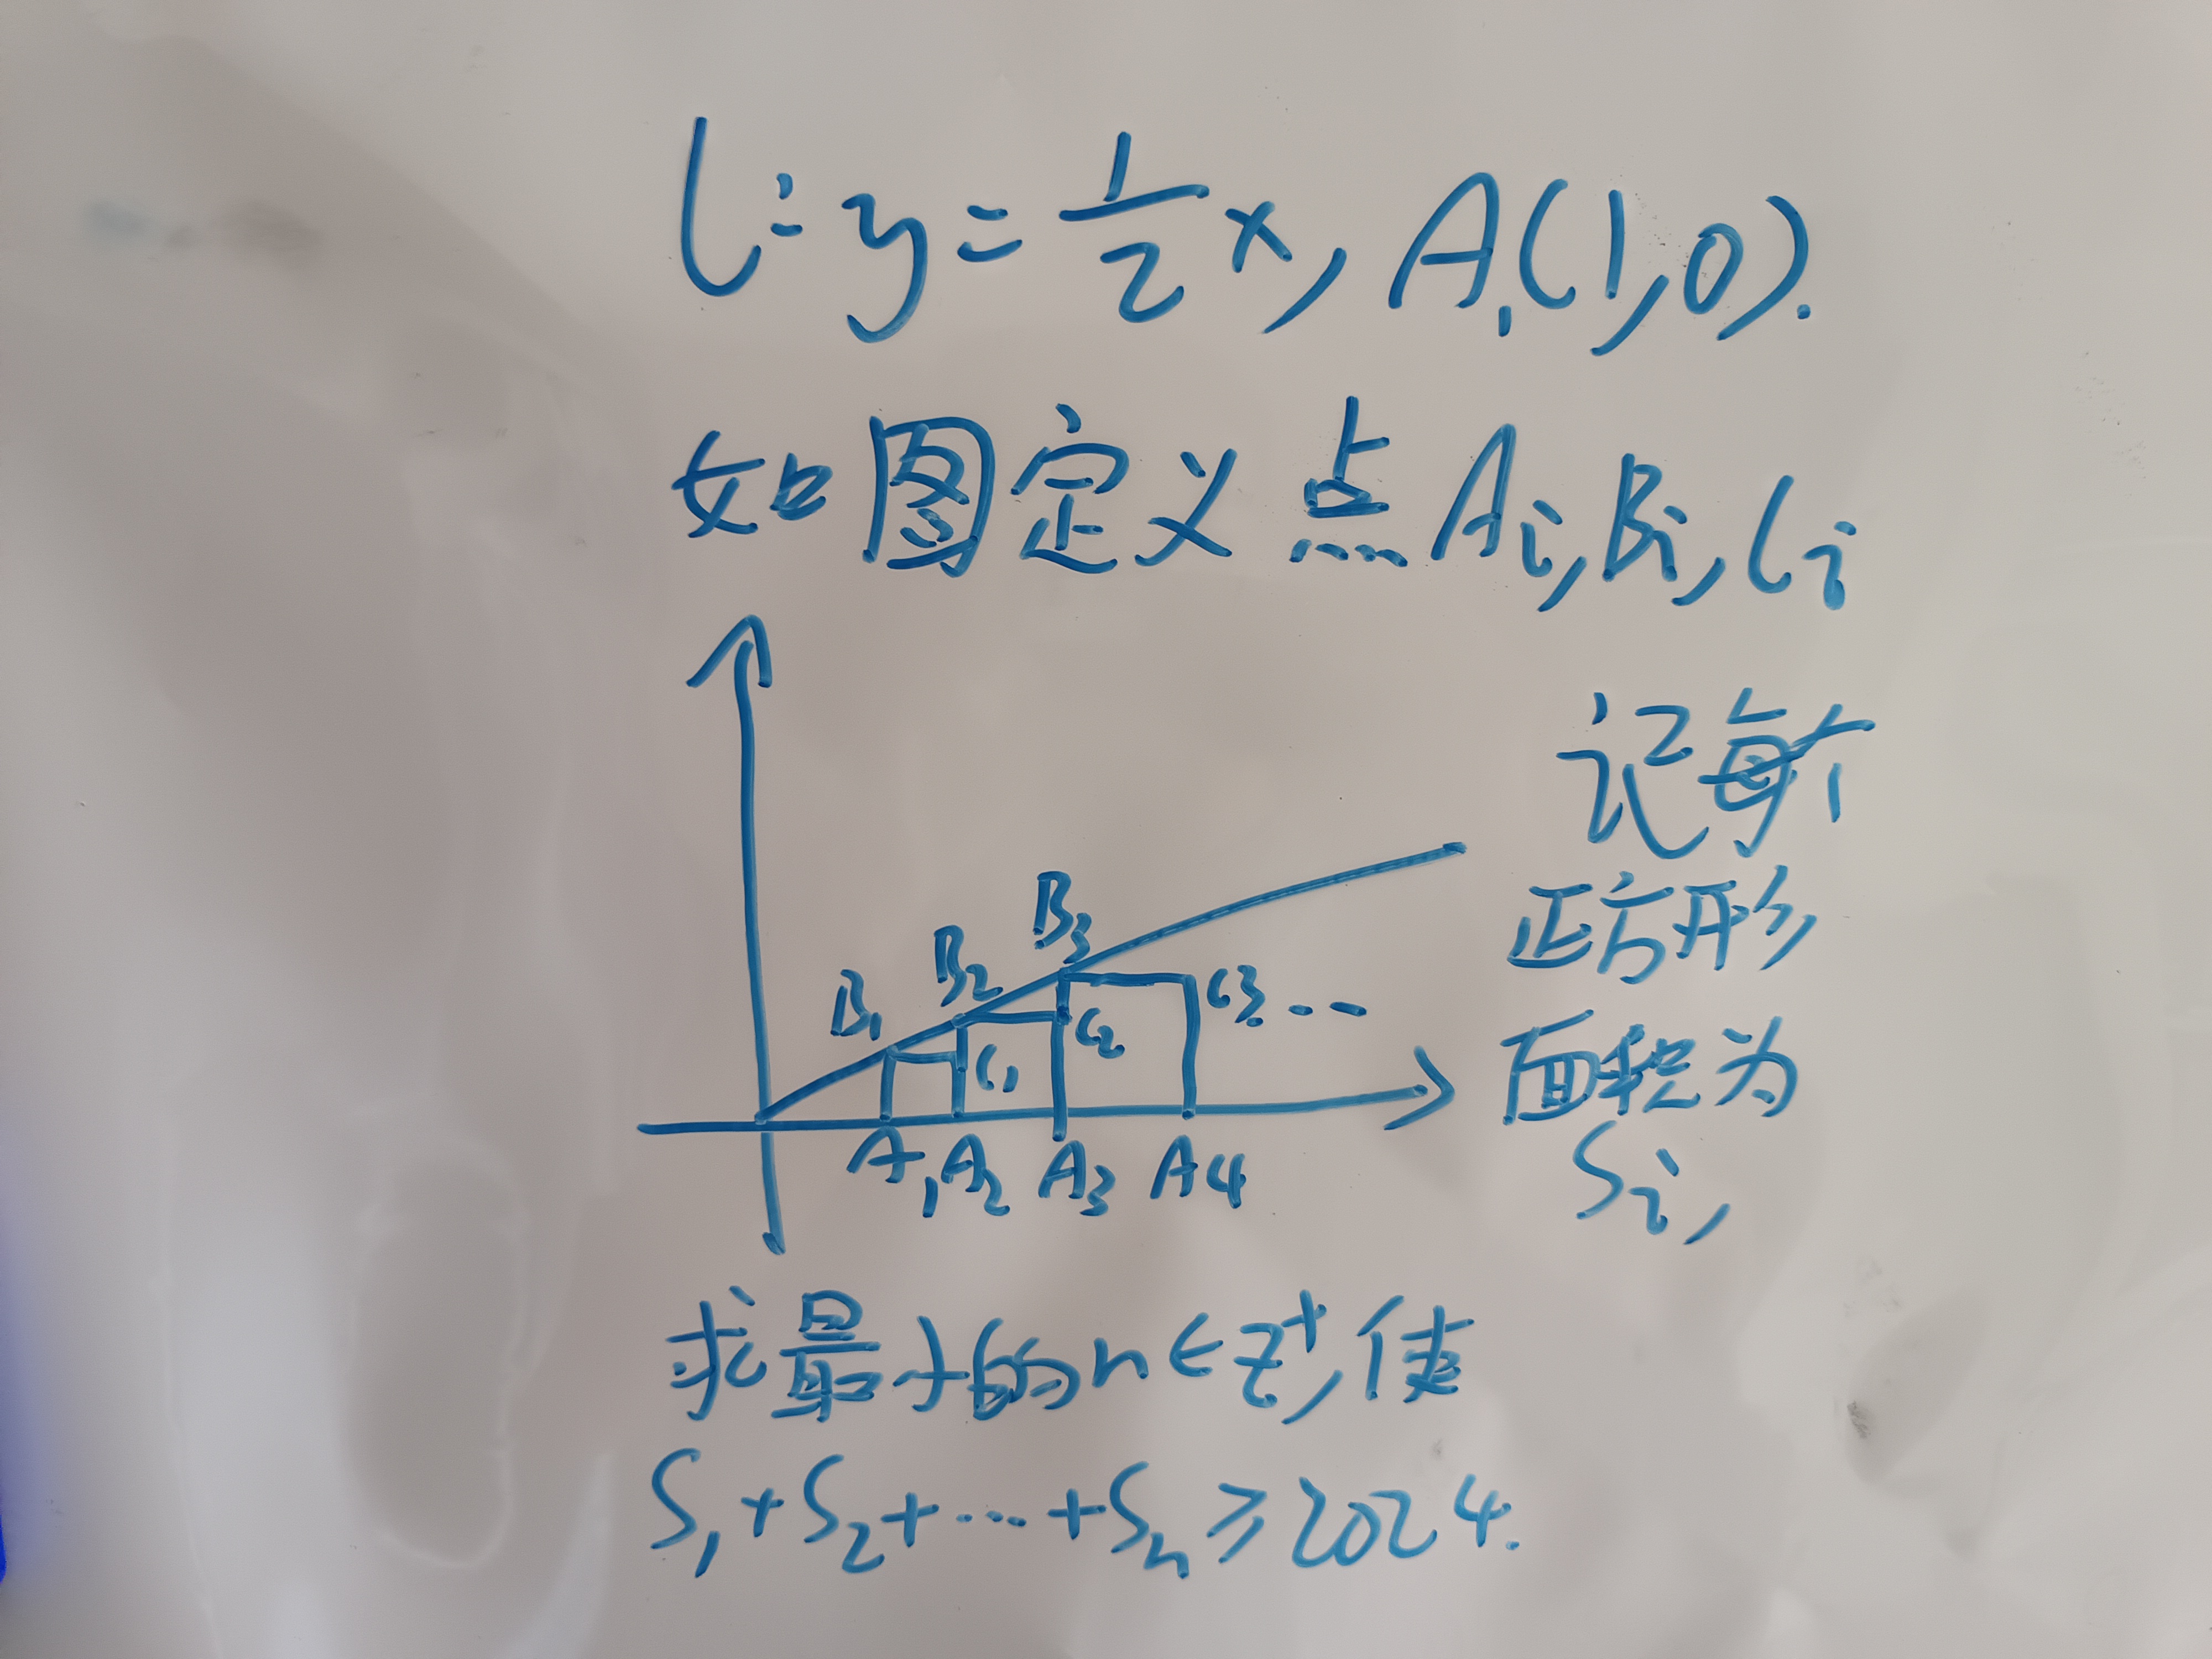 l: y = 1/2 x, A₁(1,0).
如图定义点Aᵢ,Bᵢ,Cᵢ
记每个
正方形
面积为
Sᵢ,
B₃
B₂
B₁
C₃ ...
C₂
C₁
A₁ A₂ A₃ A4
求最小的n∈Z⁺,使
S₁+S₂+...+Sₙ≥2024.